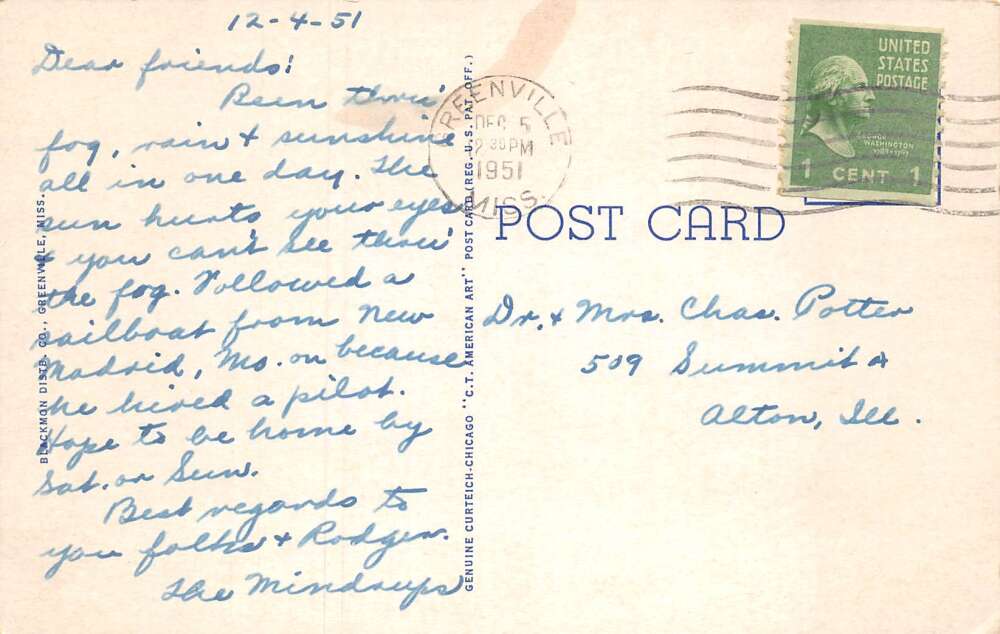 12-4-51
Dear friends:
Been thru'
fog, rain + sunshine
all in one day. The
sun hurts your eyes
+ you can't see thru'
the fog. Followed a
sailboat from New
Madrid, Mo. on because
he hired a pilot.
Hope to be home by
Sat. or Sun.
Best regards to
you folks + Rodger.
The Mindrups
BLACKMON DISTB. CO., GREENVILLE, MISS.
GENUINE CURTEICH-CHICAGO "C.T. AMERICAN ART" POST CARD (REG. U.S. PAT. OFF.)
GREENVILLE
DEC 5
2 30 PM
1951
MISS.
UNITED
STATES
POSTAGE
GEORGE
WASHINGTON
1789-1797
1 CENT 1
POST CARD
Dr. + Mrs. Chas. Potter
509 Summit
Alton, Ill.